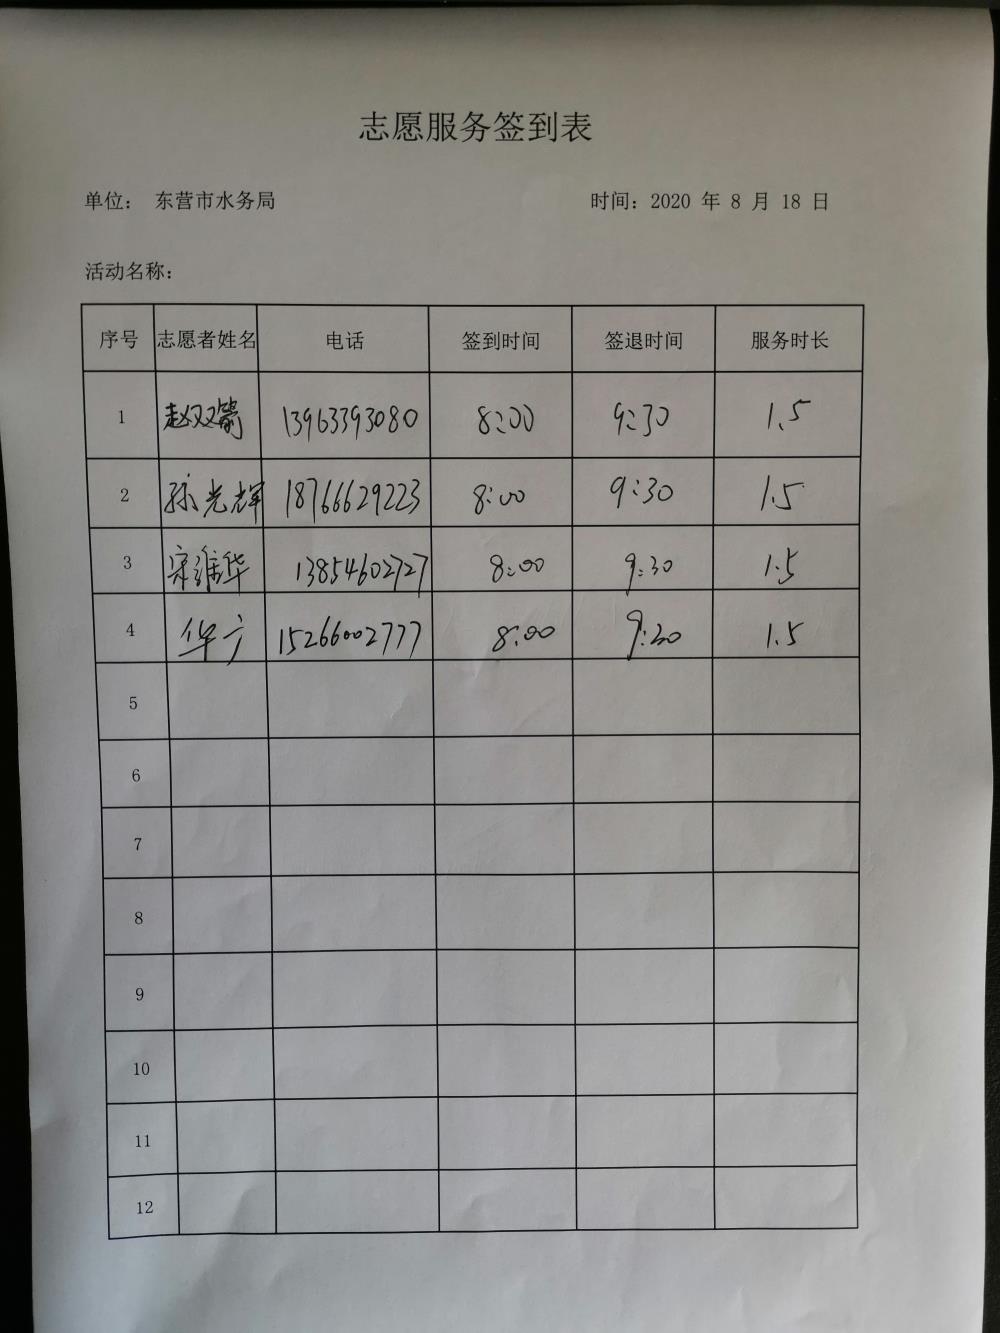 志愿服务签到表
单位： 东营市水务局 时间：2020 年 8 月 18 日
活动名称：
序号 志愿者姓名 电话 签到时间 签退时间 服务时长
1 赵双 13963393080 8:00 9:30 1.5
2 孙光辉 18766629223 8:00 9:30 1.5
3 宋维华 13854602727 8:00 9:30 1.5
4 华方 15266002777 8:00 9:30 1.5
5
6
7
8
9
10
11
12